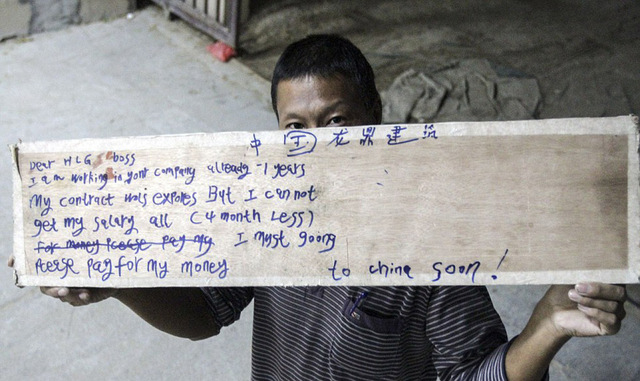 中国龙鼎建筑
Dear HLG boss
I am working in your company already 1 years
My contract was expores But I can not
get my salary all (4 month Less)
for money Please pay my I must going
Please pay for my money to china soon!